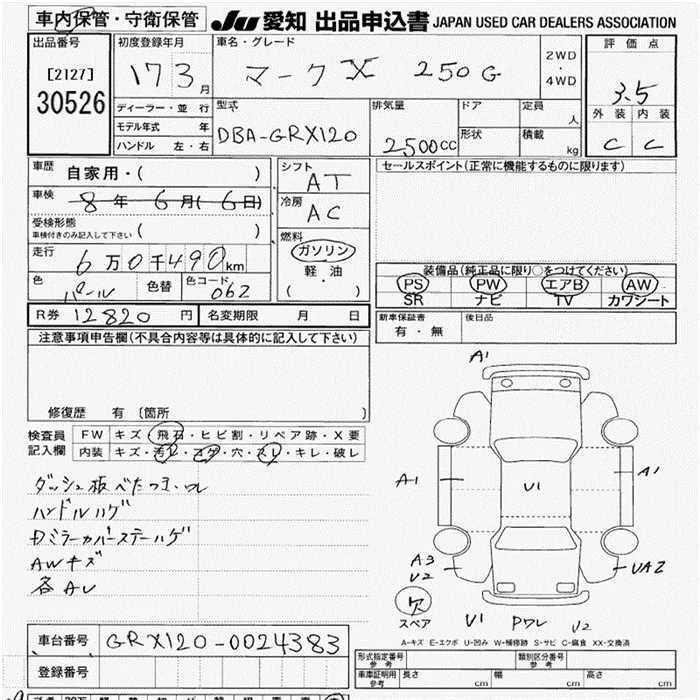 車内保管・守衛保管 JU 愛知 出品申込書 JAPAN USED CAR DEALERS ASSOCIATION
出品番号 初度登録年月 車名・グレード 2WD・4WD 評価点
[2127]
30526
17 3月 マークX 250G 3.5
ディーラー・並行 型式 排気量 ドア 定員 人 外装 内装
モデル年式 年 DBA-GRX120 2500cc 形状 積載 kg C C
ハンドル 左・右
車歴 自家用・( ) シフト AT セールスポイント(正常に機能するものに限ります)
車検 8年 6月(6日) 冷房 AC
受検形態 ( )
車検付きのみ記入して下さい
燃料 ガソリン
軽・油
( ・ )
走行 6万0千490km
色 パール 色替 色コード 062
装備品(純品に限り○をつけてください)
PS PW エアB AW
SR ナビ TV カワシート
R券 12820円 名変期限 月 日
新車保証書 有・無 後日品
注意事項申告欄(不具合内容等は具体的に記入して下さい)
修復歴 有 〔箇所 〕
検査員 FW キズ・飛石・ヒビ割・リペア跡・X要
記入欄 内装 キズ・汚レ・コゲ・穴・スレ・キレ・破レ
ダッシュ板べたつき・凹
ハンドルハゲ
ミラーカバーステーハゲ
AWキズ
各AU
A1
A1 U1 A1
A3
U2 UA2
欠
スペア U1 PワレU2
A-キズ E-エクボ U-凹み W-補修跡 S-サビ C-腐食 XX-交換済
車台番号 GRX120-0024383
登録番号
形式指定番号 参考 類別区分番号 参考
車庫証明用 参考 長さ cm 幅 cm 高さ cm